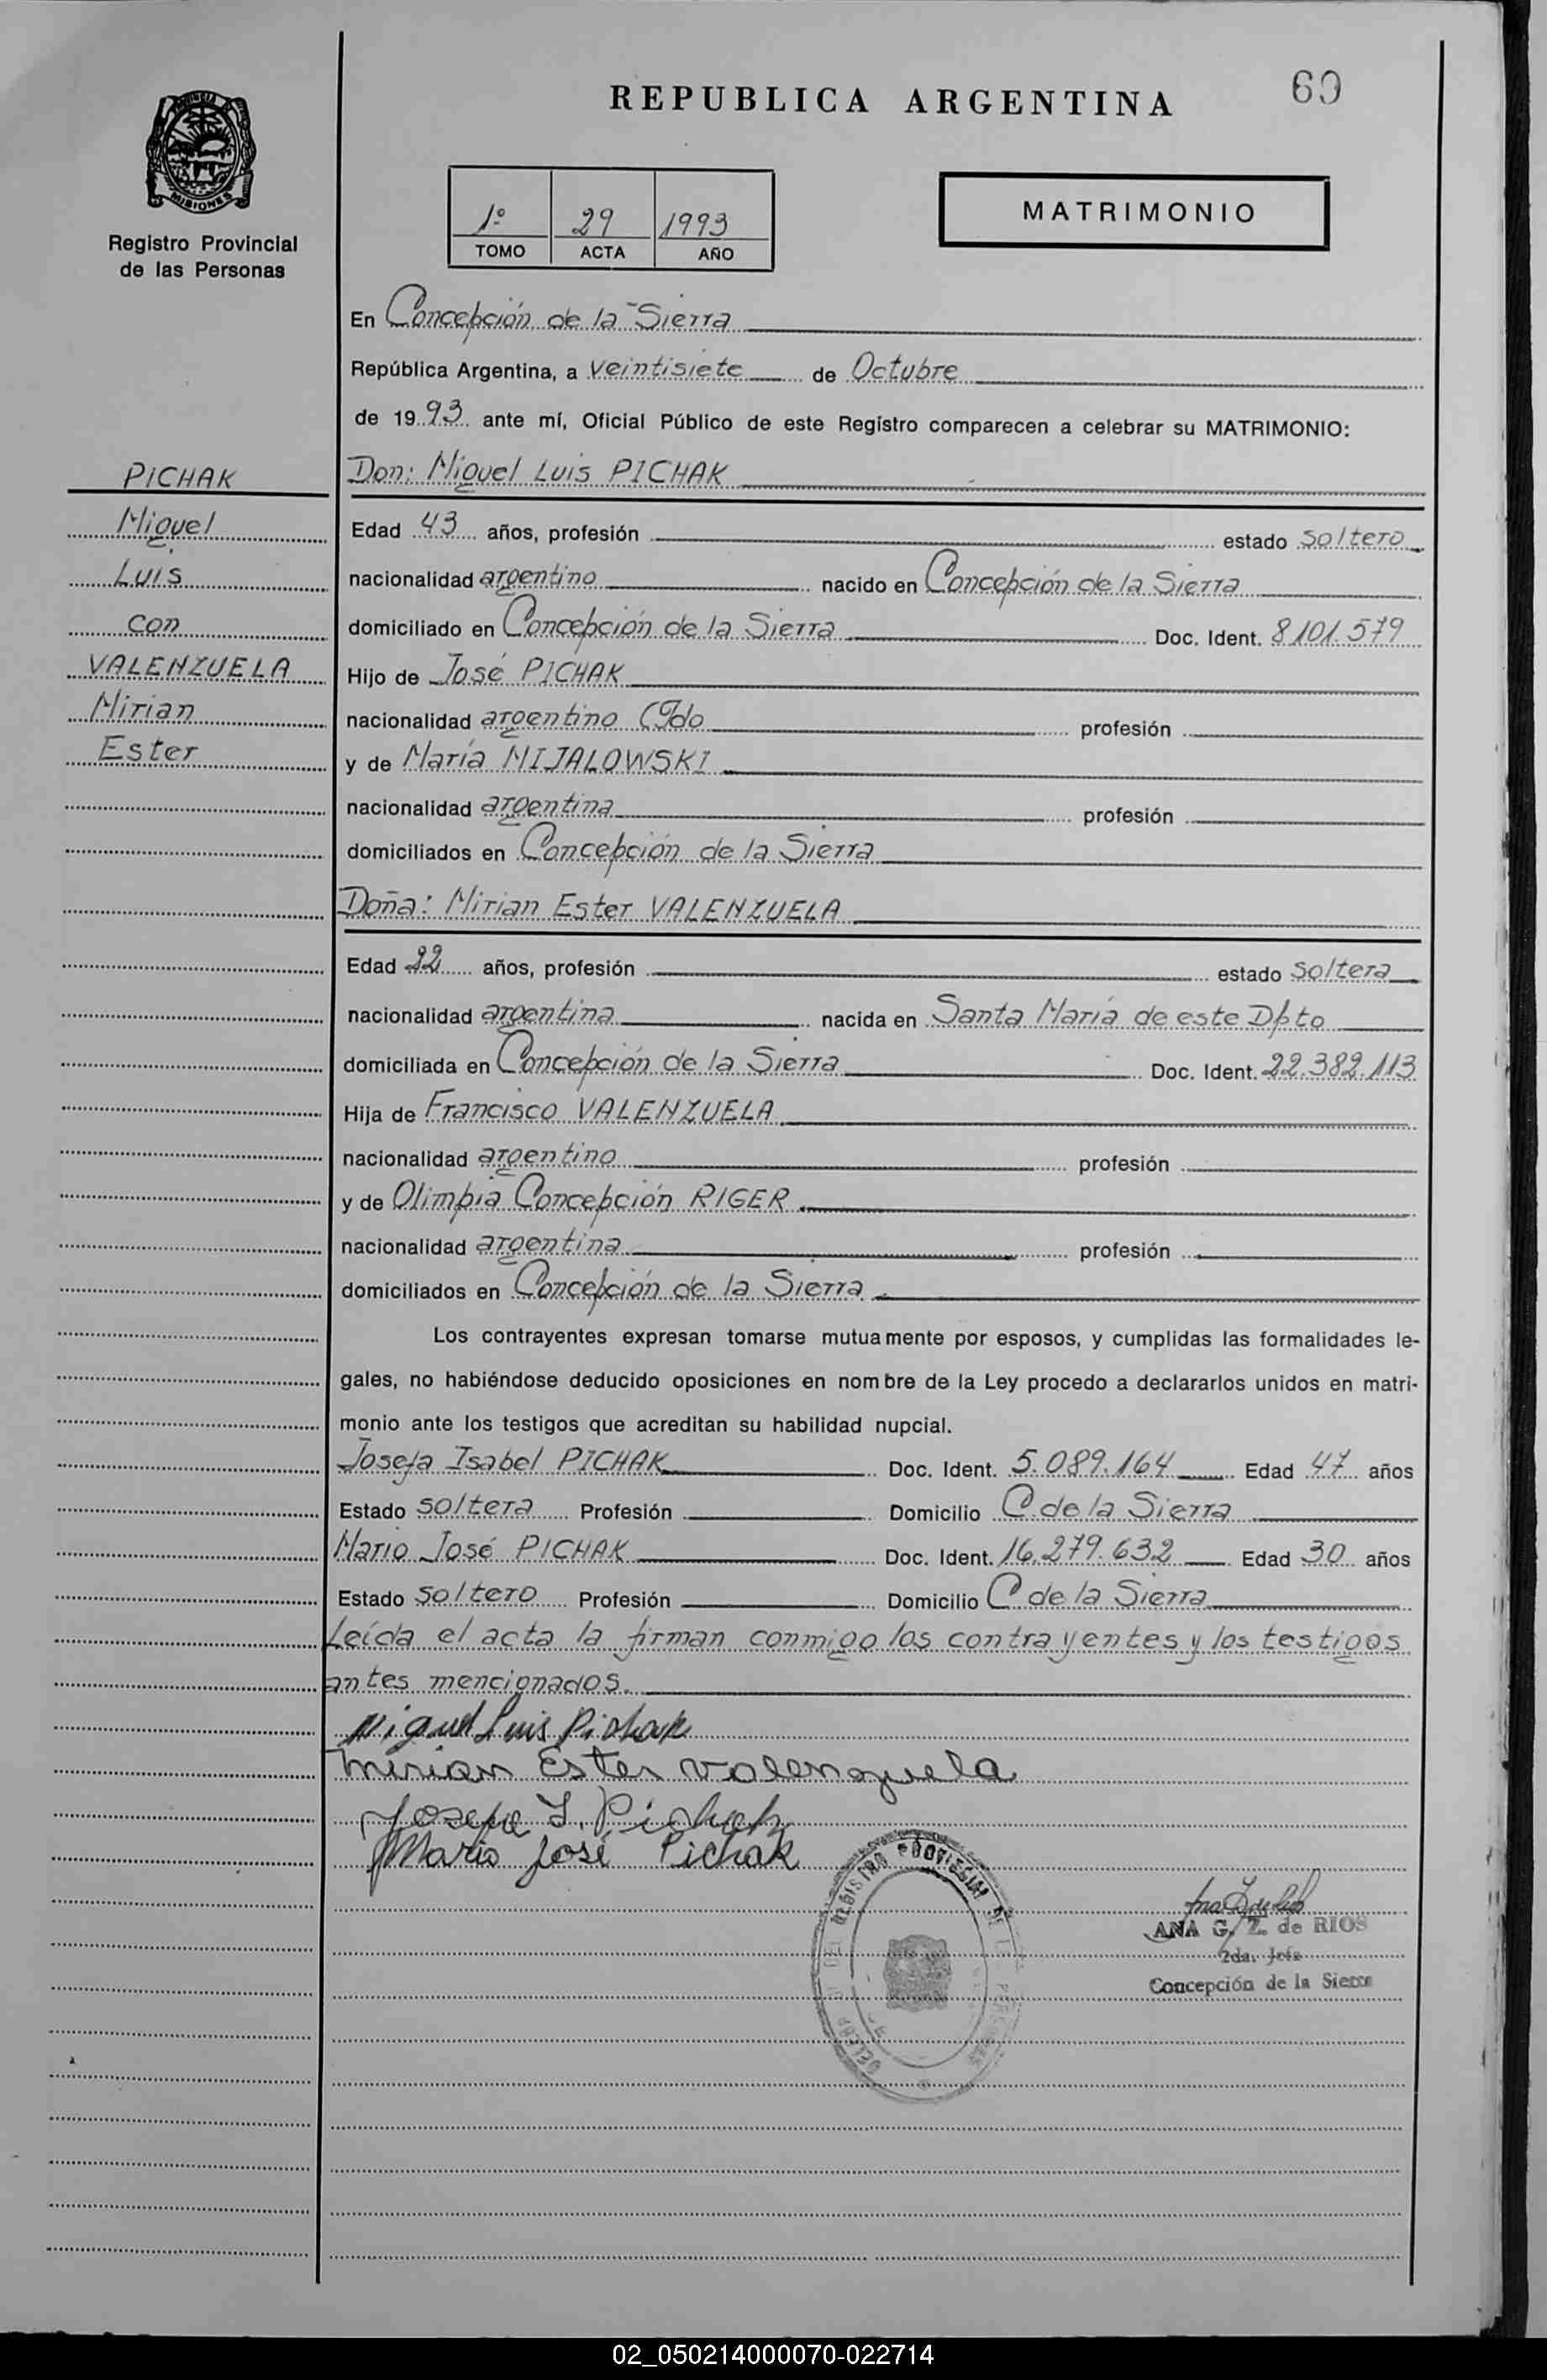 REPUBLICA ARGENTINA
69
MISIONES
Registro Provincial
de las Personas
1º 29 1993
TOMO ACTA AÑO
MATRIMONIO
En Concepción de la Sierra
República Argentina, a veintisiete de Octubre
de 1993 ante mí, Oficial Público de este Registro comparecen a celebrar su MATRIMONIO:
PICHAK
Miguel
Luis
con
VALENZUELA
Mirian
Ester
Don: Miguel Luis PICHAK
Edad 43 años, profesión estado soltero
nacionalidad argentino nacido en Concepción de la Sierra
domiciliado en Concepción de la Sierra Doc. Ident. 8101.579
Hijo de José PICHAK
nacionalidad argentino profesión
y de María MIJALOWSKI
nacionalidad argentina profesión
domiciliados en Concepción de la Sierra
Doña: Mirian Ester VALENZUELA
Edad 22 años, profesión estado soltera
nacionalidad argentina nacida en Santa María de este Dpto
domiciliada en Concepción de la Sierra Doc. Ident. 22.382.113
Hija de Francisco VALENZUELA
nacionalidad argentino profesión
y de Olimpia Concepción RIGER
nacionalidad argentina profesión
domiciliados en Concepción de la Sierra
Los contrayentes expresan tomarse mutuamente por esposos, y cumplidas las formalidades le-
gales, no habiéndose deducido oposiciones en nombre de la Ley procedo a declararlos unidos en matri-
monio ante los testigos que acreditan su habilidad nupcial.
Josefa Isabel PICHAK Doc. Ident. 5.089.164 Edad 47 años
Estado soltera Profesión Domicilio C. de la Sierra
Mario José PICHAK Doc. Ident. 16.279.632 Edad 30 años
Estado soltero Profesión Domicilio C de la Sierra
Leída el acta la firman conmigo los contrayentes y los testigos
antes mencionados.
Miguel Luis Pichak
Mirian Ester Valenzuela
Josefa I. Pichak
Mario José Pichak
ANA G. Z. de RIOS
2da. Jefe
Concepción de la Sierra
02_050214000070-022714